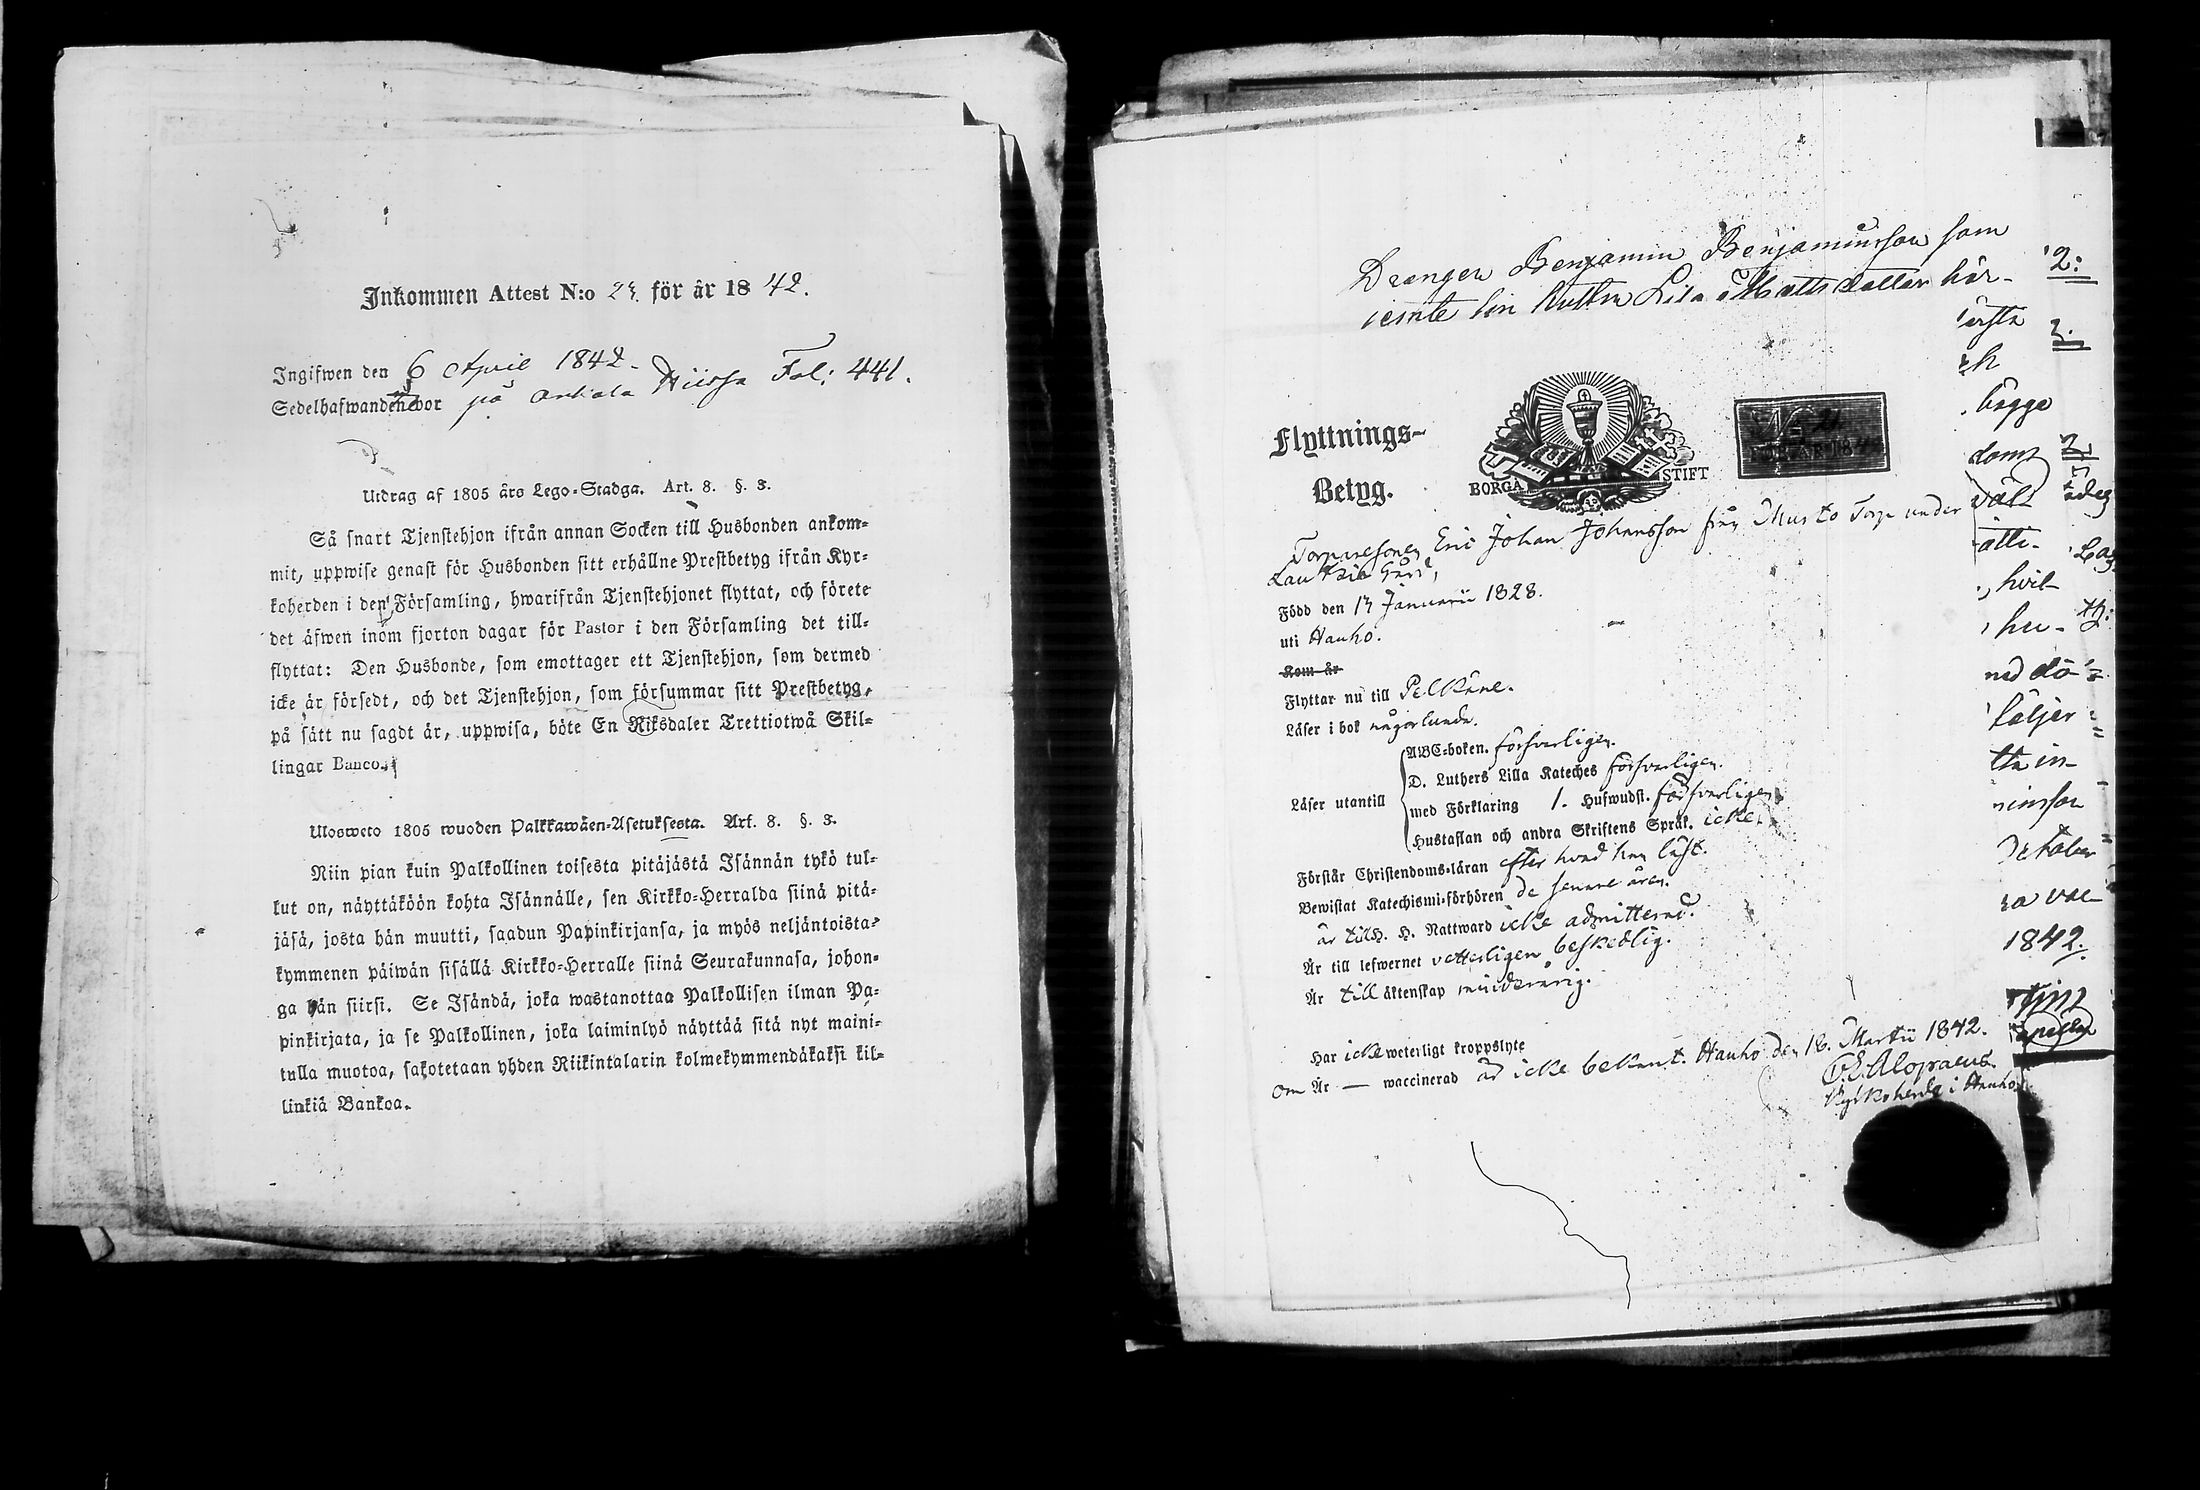 Inkommen Attest N:o 23. för år 1842.
Ingifwen den 6 April 1842.
Sedelhafwanden bor på Ankola Hiissa Fol: 441.
Utdrag af 1805 års Lego-Stadga. Art. 8. §. 3.
Så snart Tjenstehjon ifrån annan Socken till Husbonden ankom-
mit, uppwise genast för Husbonden sitt erhållne Prestbetyg ifrån Kyr-
koherden i den Församling, hwarifrån Tjenstehjonet flyttat, och förete
det äfwen inom fjorton dagar för Pastor i den Församling det till-
flyttat: Den Husbonde, som emottager ett Tjenstehjon, som dermed
icke är försedt, och det Tjenstehjon, som försummar sitt Prestbetyg,
på sätt nu sagdt är, uppwisa, böte En Riksdaler Trettiotwå Skil-
lingar Banco.
Ulosweto 1805 wuoden Palkkawäen-Asetuksesta. Art. 8. §. 3.
Niin pian kuin Palkollinen toisesta pitäjästä Isännän tykö tul-
lut on, näyttäköön kohta Isännälle, sen Kirkko-Herralda siinä pitä-
jäsä, josta hän muutti, saadun Papinkirjansa, ja myös neljäntoista-
kymmenen päiwän sisällä Kirkko-Herralle siinä Seurakunnasa, johon-
ga hän siirsi. Se Isändä, joka wastanottaa Palkollisen ilman Pa-
pinkirjata, ja se Palkollinen, joka laiminlyö näyttää sitä nyt maini-
tulla muotoa, sakotetaan yhden Riikintalarin kolmekymmendäkaksi kil-
linkiä Bankoa.
Drengen Benjamin Benjaminsson som
jemte sin hustru Lisa Mattsdotter här-
Flyttnings-
Betyg.
BORGÅ STIFT
FÖR ÅR 18
Torparesonen Eric Johan Johansson från Musto Torp under
Lautsia Gård,
Född den 13 Januarii 1828.
uti Hauho.
Kom år
Flyttar nu till Pelkäne.
Läser i bok någorlunda.
Läser utantill
ABC-boken. försvarligen.
D. Luthers Lilla Kateches försvarligen.
med Förklaring 1. Hufwudst. försvarligen
Hustaflan och andra Skriftens Språk. icke.
Förstår Christendoms-läran efter hvad han läst.
Bewistat Katechismi-förhören de senare åren.
är till H. H. Nattward icke admitterad.
Är till lefwernet vetterligen beskedlig.
Är till äktenskap minderårig.
Har icke weterligt kroppslyte
Om Är — waccinerad är icke bekant. Hauho den 16. Martii 1842.
Alopraeus.
Kyrkoherde i Hauho
2:
2.
bägge
doms
hvil-
följer
October
1842.